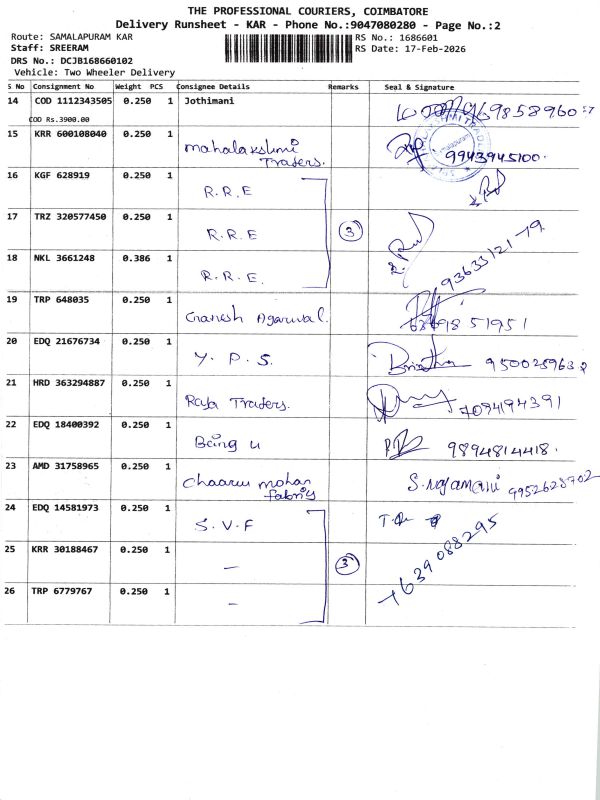 THE PROFESSIONAL COURIERS, COIMBATORE
Delivery Runsheet - KAR - Phone No.:9047080280 - Page No.:2
Route: SAMALAPURAM KAR
RS No.: 1686601
Staff: SREERAM
RS Date: 17-Feb-2026
DRS No.: DCJB168660102
Vehicle: Two Wheeler Delivery
S No Consignment No Weight PCS Consignee Details Remarks Seal & Signature
14 COD 1112343505 0.250 1 Jothimani
COD Rs.3900.00
15 KRR 600108040 0.250 1 Mahalakshmi Traders. 9943945100.
16 KGF 628919 0.250 1 R.R.E
17 TRZ 320577450 0.250 1 R.R.E 3
18 NKL 3661248 0.386 1 R.R.E.
19 TRP 648035 0.250 1 Ganesh Agarwal.
20 EDQ 21676734 0.250 1 Y. P. S.
21 HRD 363294887 0.250 1 Raja Traders. 7094194391
22 EDQ 18400392 0.250 1 Being u 9894814418.
23 AMD 31758965 0.250 1 mohan 9952628702
24 EDQ 14581973 0.250 1 S.V.F
25 KRR 30188467 0.250 1 – 3
26 TRP 6779767 0.250 1 –